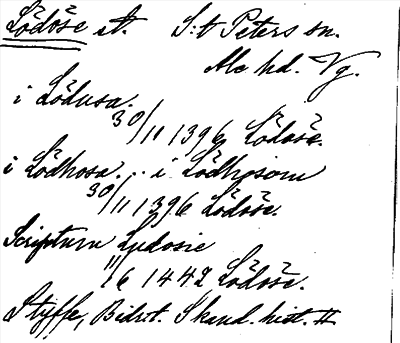 Lödöse st. S:t Peters sn.
Ale hd. Vg.
i Lödusa.
30/11 1396 Lödöse.
i Lödhosa... i Lödhosom
30/11 1396 Lödöse.
Scriptum Ludosie
11/6 1442 Lödöse.
Styffe, Bidrt. Skand. hist. II